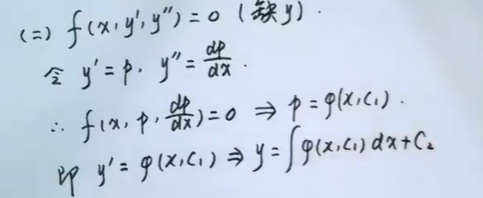 (二) f(x, y', y'') = 0 (缺y).
令 y' = p. y'' = dp/dx.
∴ f(x, p, dp/dx) = 0 ⇒ p = φ(x, C₁).
即 y' = φ(x, C₁) ⇒ y = ∫φ(x, C₁) dx + C₂